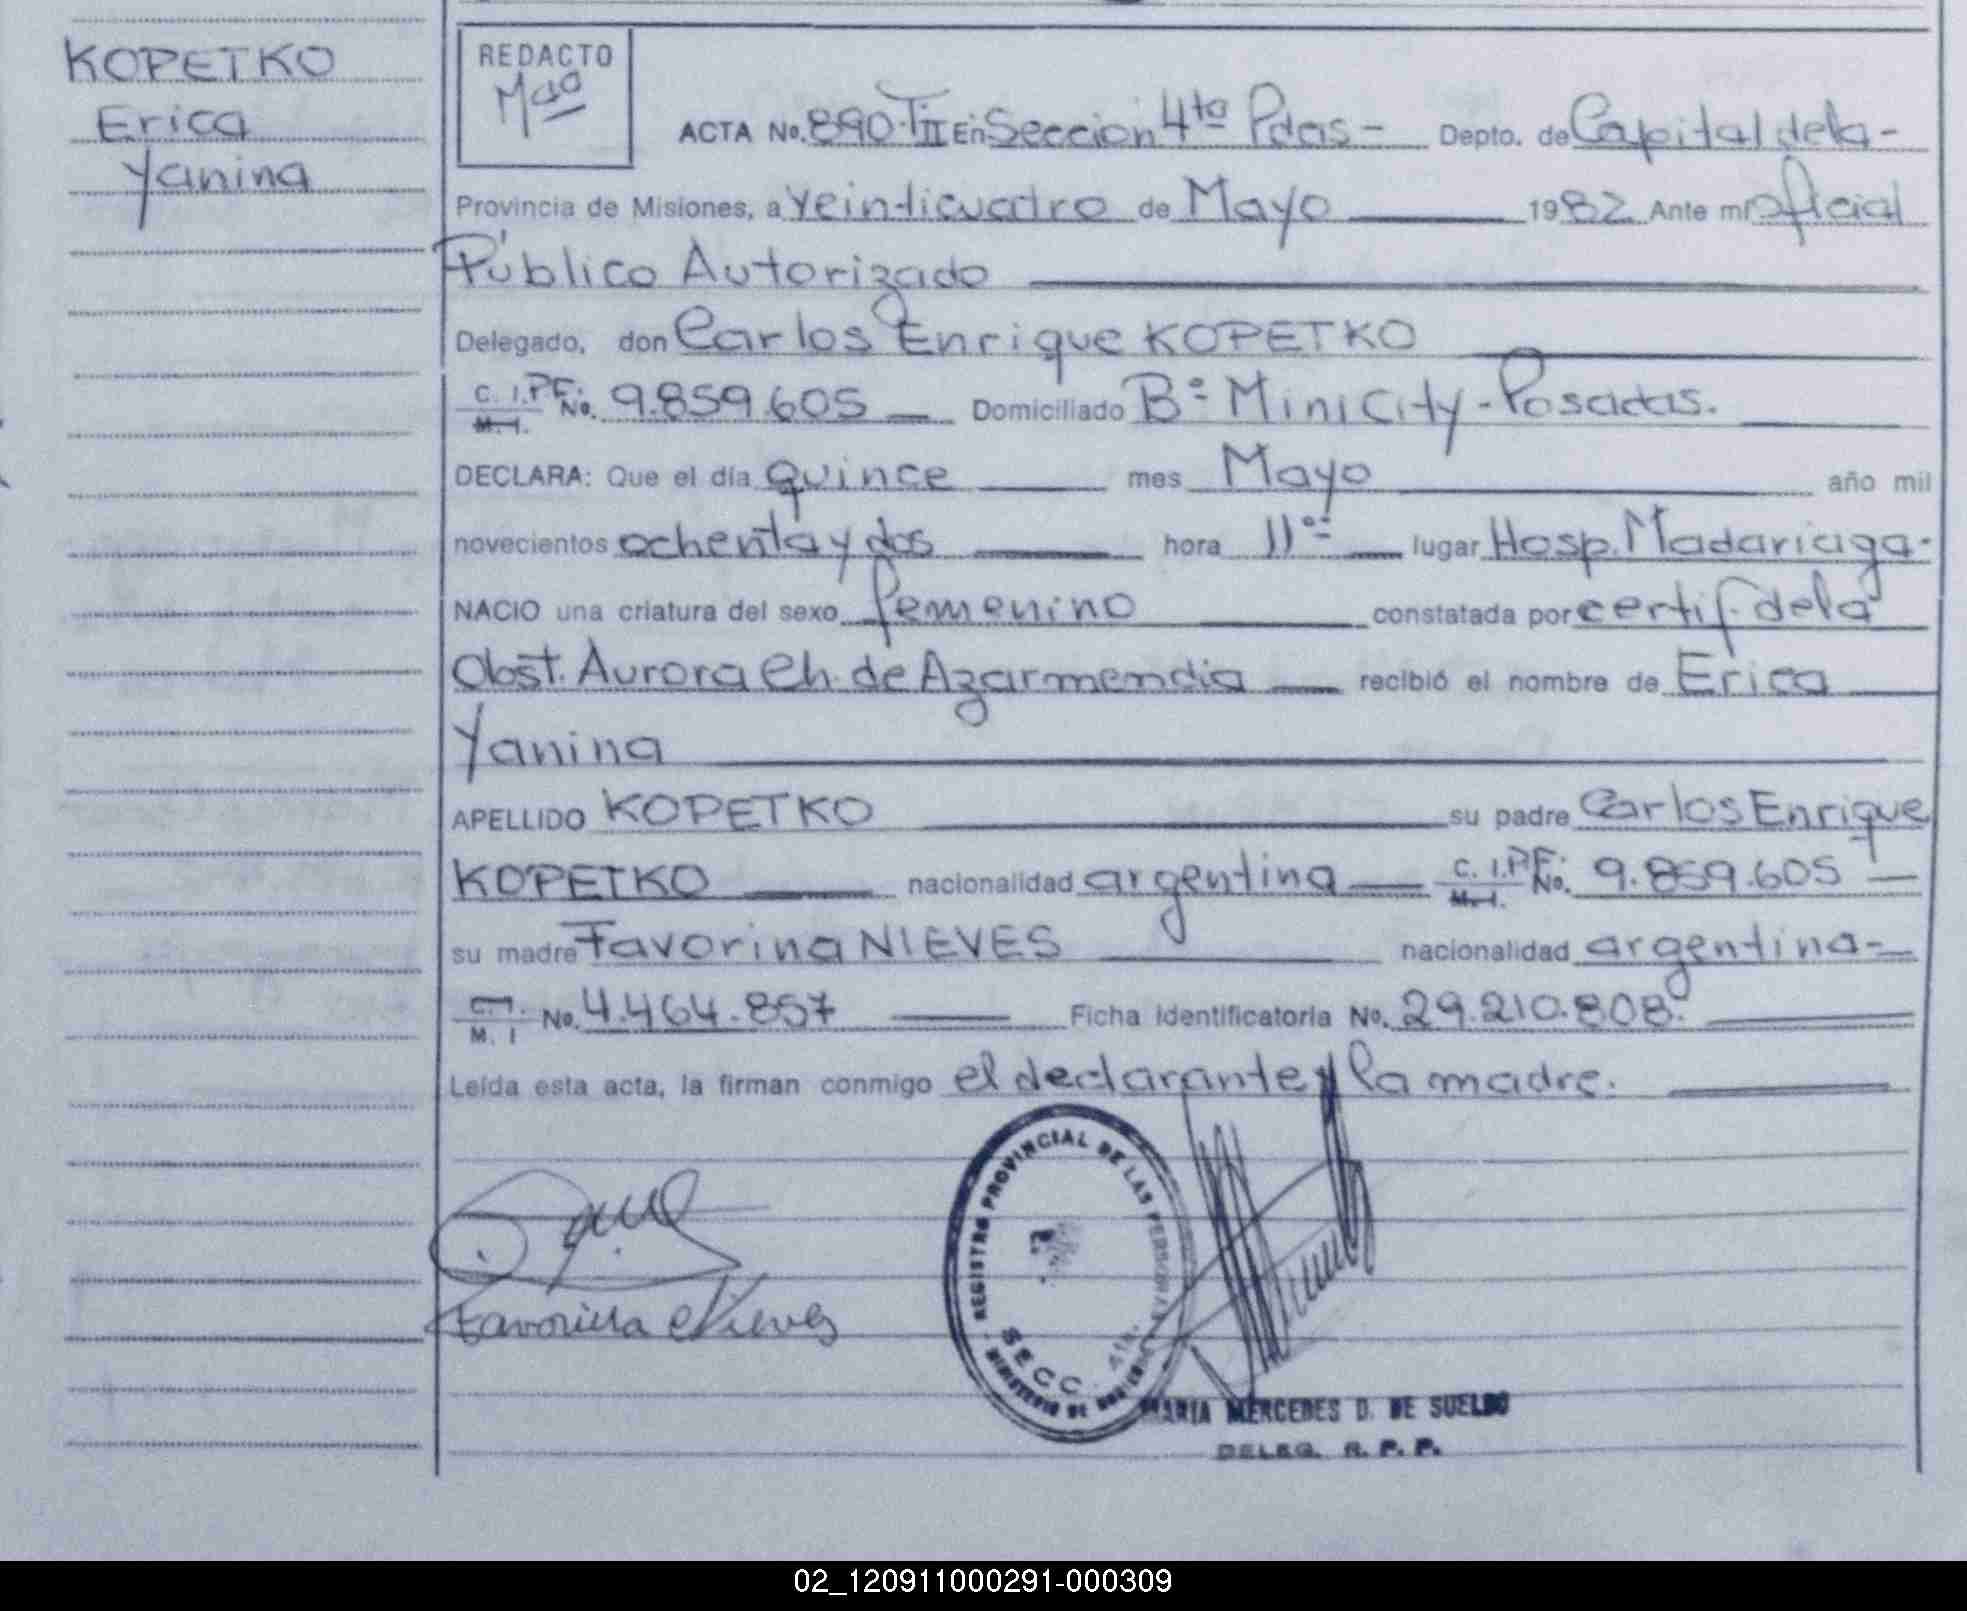 KOPETKO
Erica
Yanina
REDACTO
ACTA No. 890-TII En Seccion 4ta Pdas- Depto. de Capital dela-
Provincia de Misiones, a veinticuatro de Mayo 1982 Ante mi oficial
Público Autorizado
Delegado, don Carlos Enrique KOPETKO
C. I.P.F. No. 9.859.605 Domiciliado B° Mini City-Posadas.
M. I.
DECLARA: Que el día quince mes Mayo año mil
novecientos ochenta y dos hora 11°° lugar Hosp. Madariaga.
NACIO una criatura del sexo femenino constatada por certif. dela
Obst. Aurora Ch. de Azarmendia recibió el nombre de Erica
Yanina
APELLIDO KOPETKO su padre Carlos Enrique
KOPETKO nacionalidad argentina C. I.P.F. No. 9.859.605
M. I.
su madre Favorina NIEVES nacionalidad argentina-
C. I. No. 4.464.857 Ficha identificatoria No. 29.210.808.
M. I
Leída esta acta, la firman conmigo el declarante y la madre.
REGISTRO PROVINCIAL DE LAS PERSONAS
SECC. 4ta.
MINISTERIO DE
Favorina Nieves
MARIA MERCEDES D. DE SUELDO
DELEG. R. P. P.
02_120911000291-000309